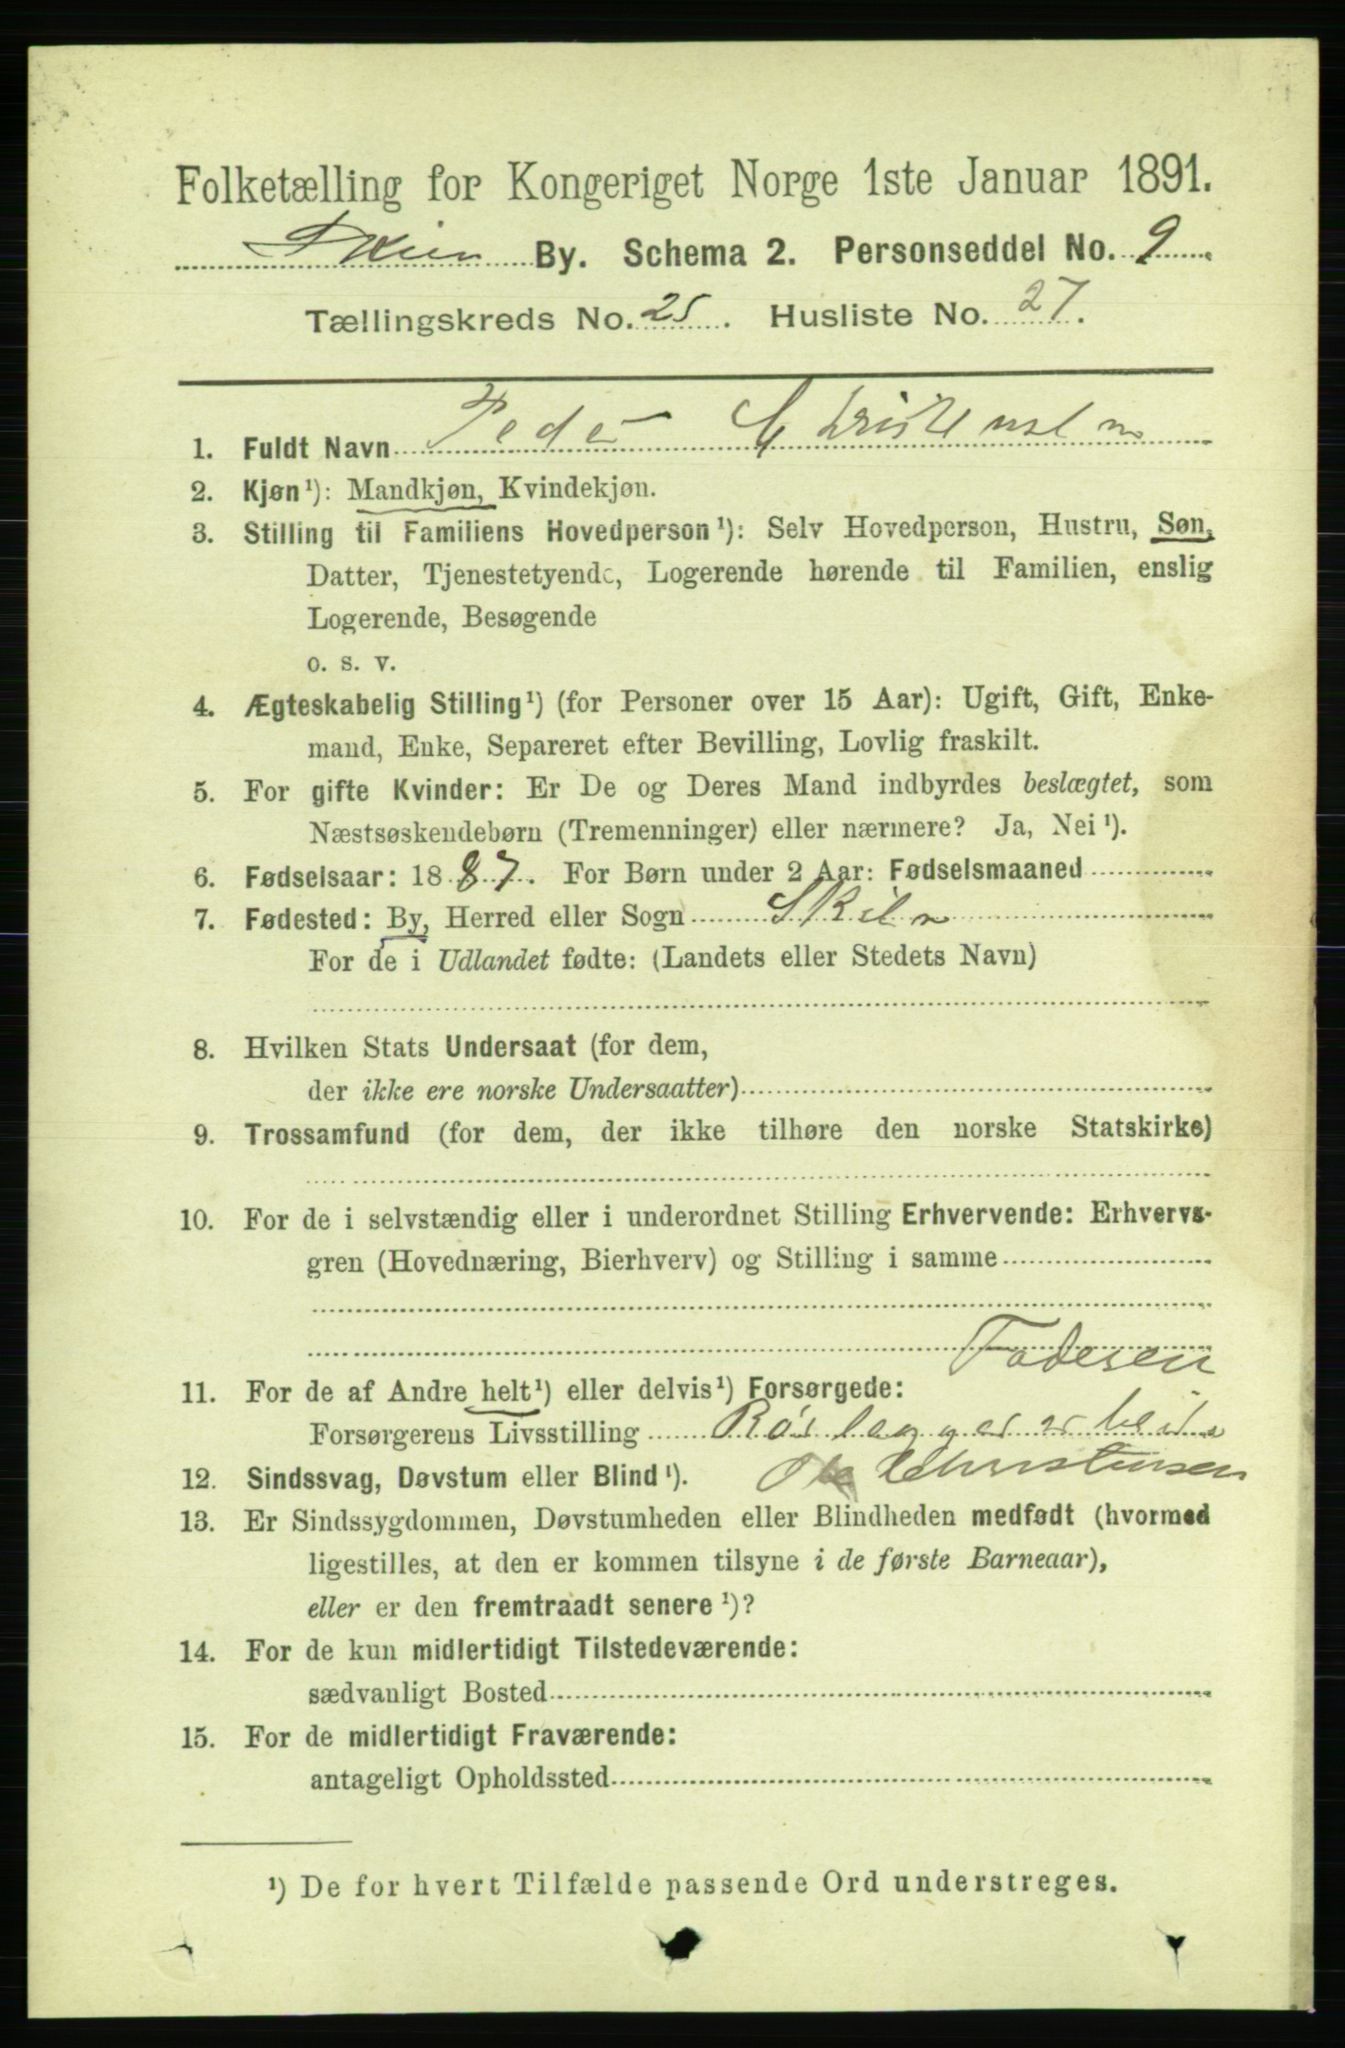 Folketælling for Kongeriget Norge 1ste Januar 1891.
Skien By. Schema 2. Personseddel No. 9
Tællingskreds No. 25. Husliste No. 27.
1. Fuldt Navn Peder Christensen
2. Kjøn¹): Mandkjøn, Kvindekjøn.
3. Stilling til Familiens Hovedperson¹): Selv Hovedperson, Hustru, Søn,
Datter, Tjenestetyende, Logerende hørende til Familien, enslig
Logerende, Besøgende
o. s. v.
4. Ægteskabelig Stilling¹) (for Personer over 15 Aar): Ugift, Gift, Enke-
mand, Enke, Separeret efter Bevilling, Lovlig fraskilt.
5. For gifte Kvinder: Er De og Deres Mand indbyrdes beslægtet, som
Næstsøskendebørn (Tremenninger) eller nærmere? Ja, Nei¹).
6. Fødselsaar: 1887. For Børn under 2 Aar: Fødselsmaaned
7. Fødested: By, Herred eller Sogn Skien
For de i Udlandet fødte: (Landets eller Stedets Navn)
8. Hvilken Stats Undersaat (for dem,
der ikke ere norske Undersaatter)
9. Trossamfund (for dem, der ikke tilhøre den norske Statskirke)
10. For de i selvstændig eller i underordnet Stilling Erhvervende: Erhvervs-
gren (Hovednæring, Bierhverv) og Stilling i samme
Faderen
11. For de af Andre helt¹) eller delvis¹) Forsørgede:
Forsørgerens Livsstilling
12. Sindssvag, Døvstum eller Blind¹). Ole Christensen
13. Er Sindssygdommen, Døvstumheden eller Blindheden medfødt (hvormed
ligestilles, at den er kommen tilsyne i de første Barneaar),
eller er den fremtraadt senere¹)?
14. For de kun midlertidigt Tilstedeværende:
sædvanligt Bosted
15. For de midlertidigt Fraværende:
antageligt Opholdssted
¹) De for hvert Tilfælde passende Ord understreges.